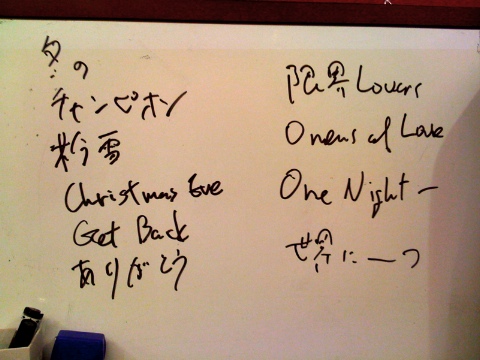 の
チャンピオン
粉雪
Christmas Eve
Get Back
ありがとう
限界Lovers
of Love
One Night ー
世界に一つ